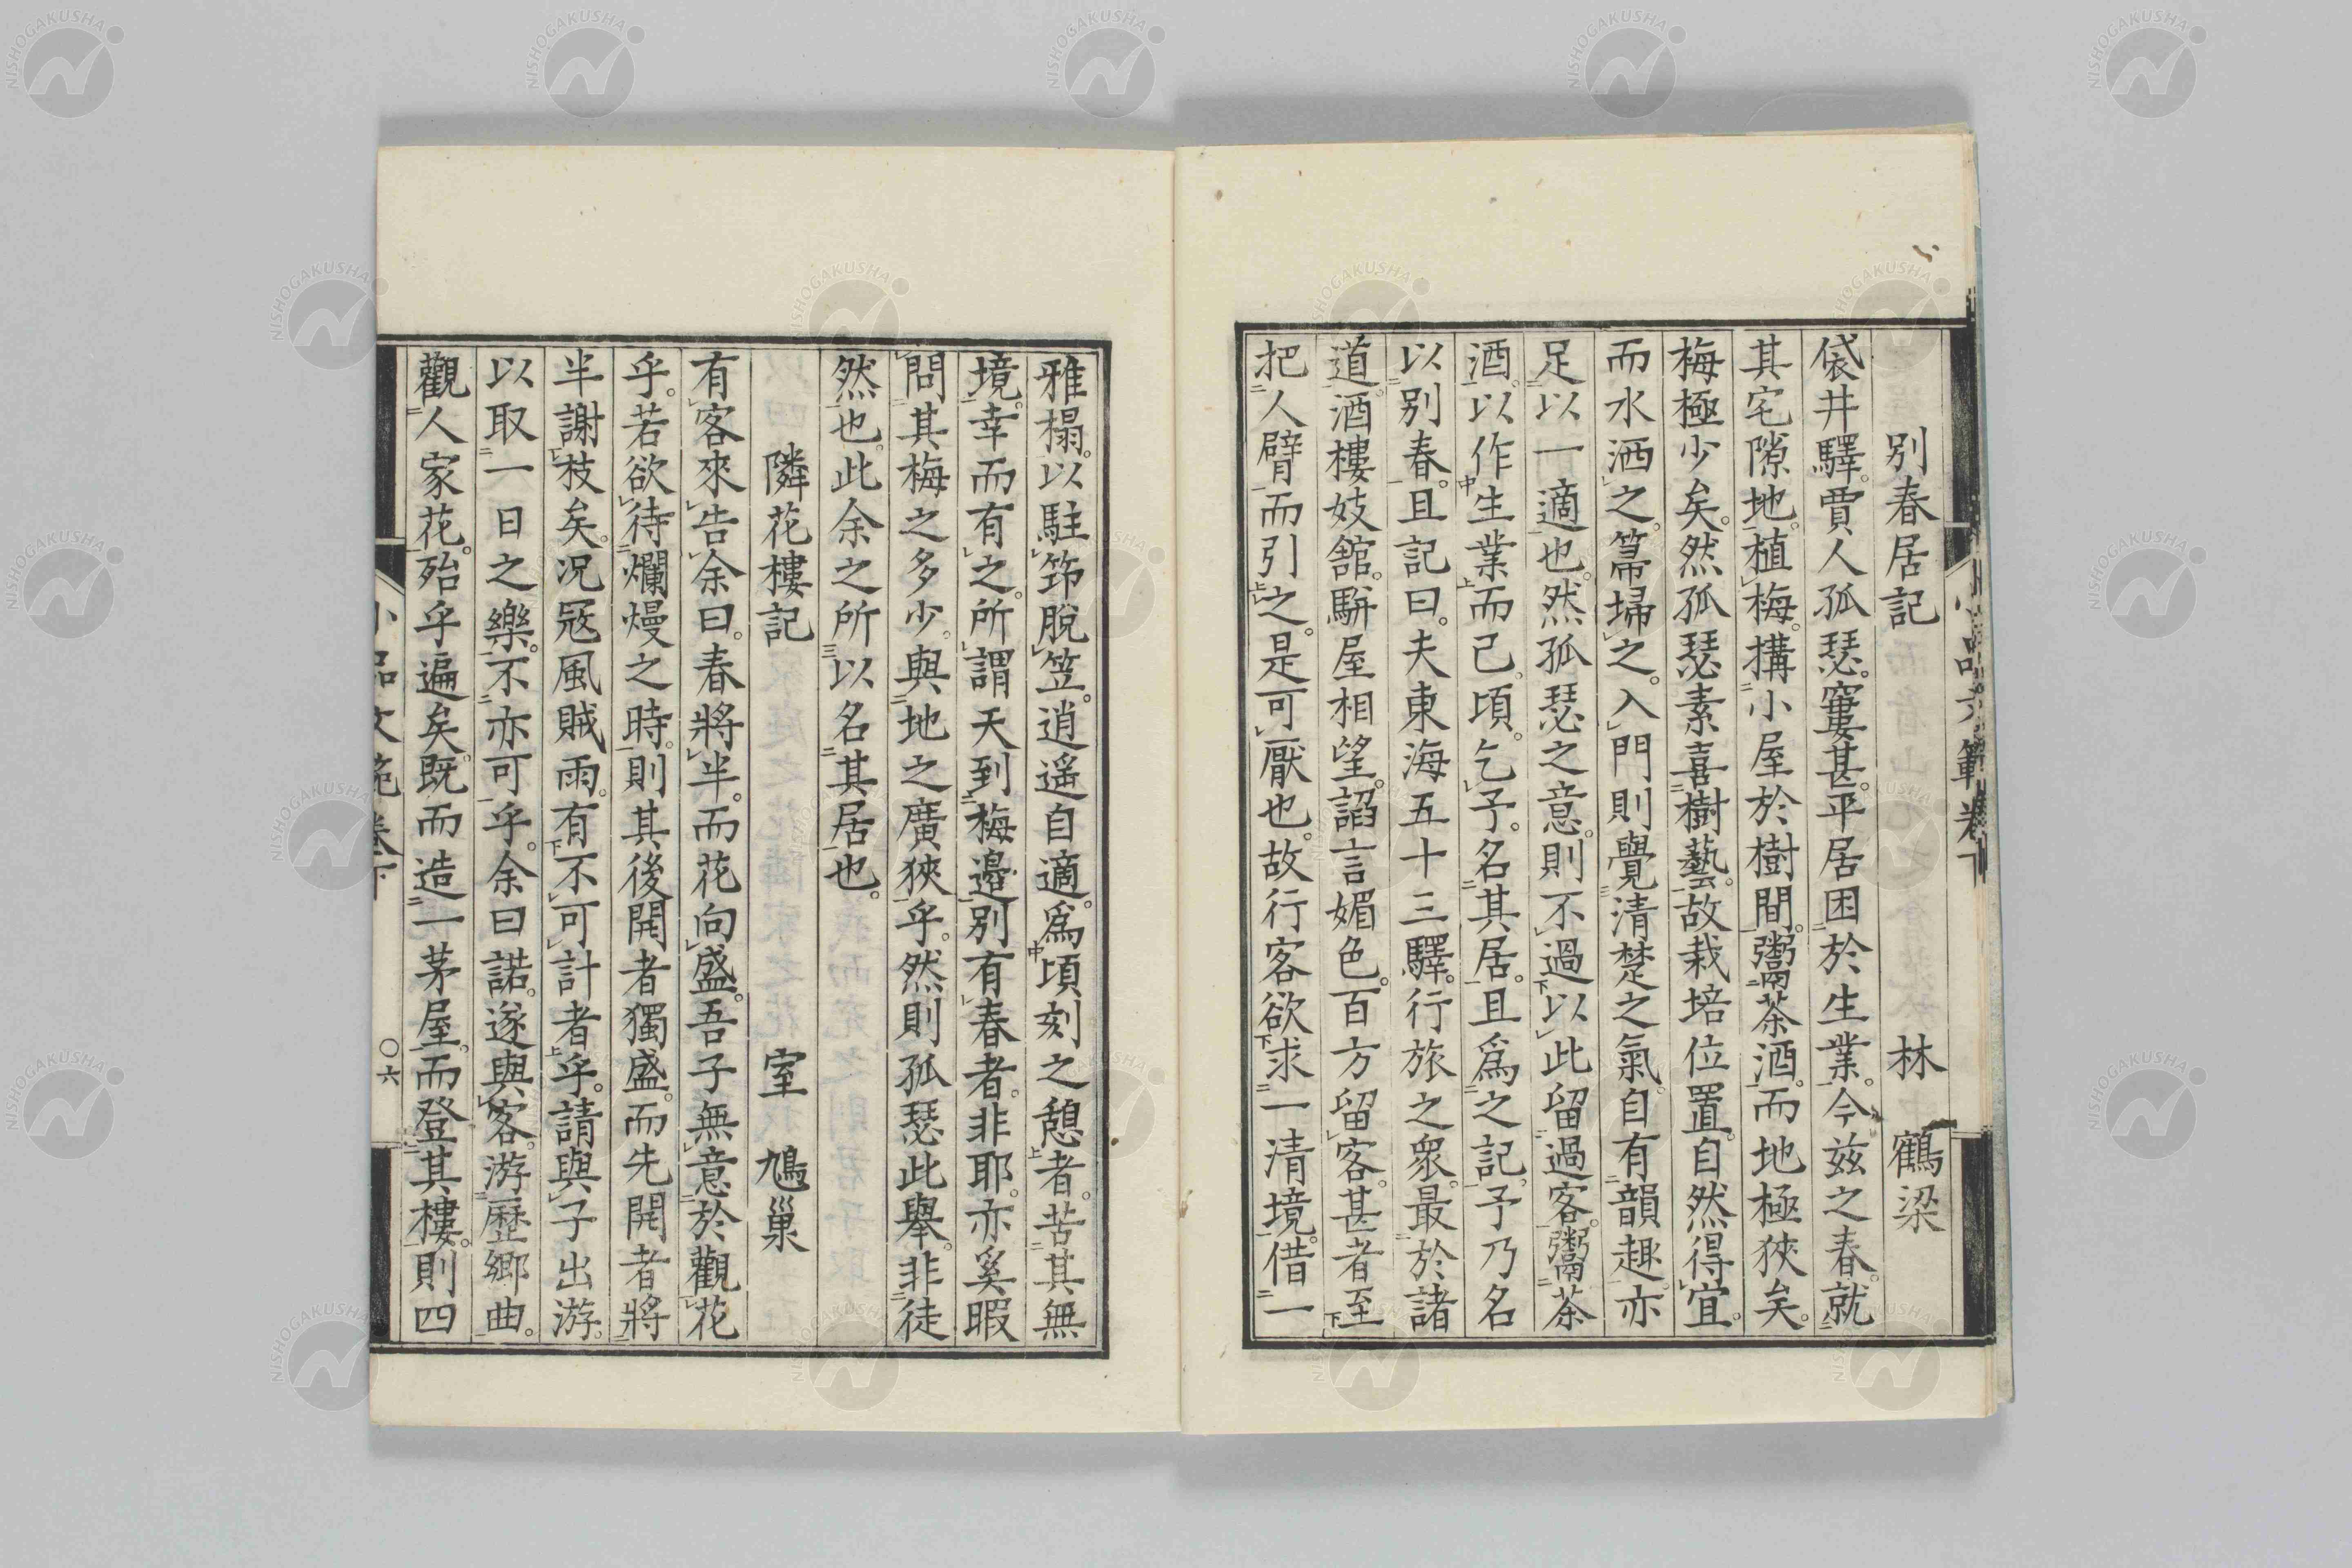 別春居記　林　鶴梁
袋井驛。賈人孤瑟。窶甚。平居困於生業。今玆之春。就
其宅隙地。植梅。搆小屋於樹間。鬻茶酒。而地極狹矣。
梅極少矣。然孤瑟素喜樹藝。故栽培位置。自然得宜。
而水洒之。箒埽之。入門則覺清楚之氣。自有韻趣。亦
足以一適也。然孤瑟之意。則不過以此留過客。鬻茶
酒。以作生業而已。頃。乞予。名其居。且爲之記。予乃名
以別春。且記曰。夫東海五十三驛。行旅之衆。最於諸
道。酒樓妓舘。駢屋相望。諂言媚色。百方留客。甚者至
把人臂而引之。是可厭也。故行客欲求一清境。借一
雅榻。以駐笻脫笠。逍遥自適。爲頃刻之憩者。苦其無
境。幸而有之。所謂天到梅邉別有春者。非耶。亦奚暇
問其梅之多少。與地之廣狹乎。然則孤瑟此舉。非徒
然也。此余之所以名其居也。
隣花樓記　室　鳩巢
有客來告余曰。春將半。而花向盛。吾子無意於觀花
乎。若欲待爛熳之時。則其後開者獨盛。而先開者將
半謝枝矣。况冦風賊雨。有不可計者乎。請與子出游。
以取一日之樂。不亦可乎。余曰諾。遂與客。游歷鄉曲。
觀人家花。殆乎遍矣。既而造一茅屋。而登其樓。則四
小品文範卷下
〇六